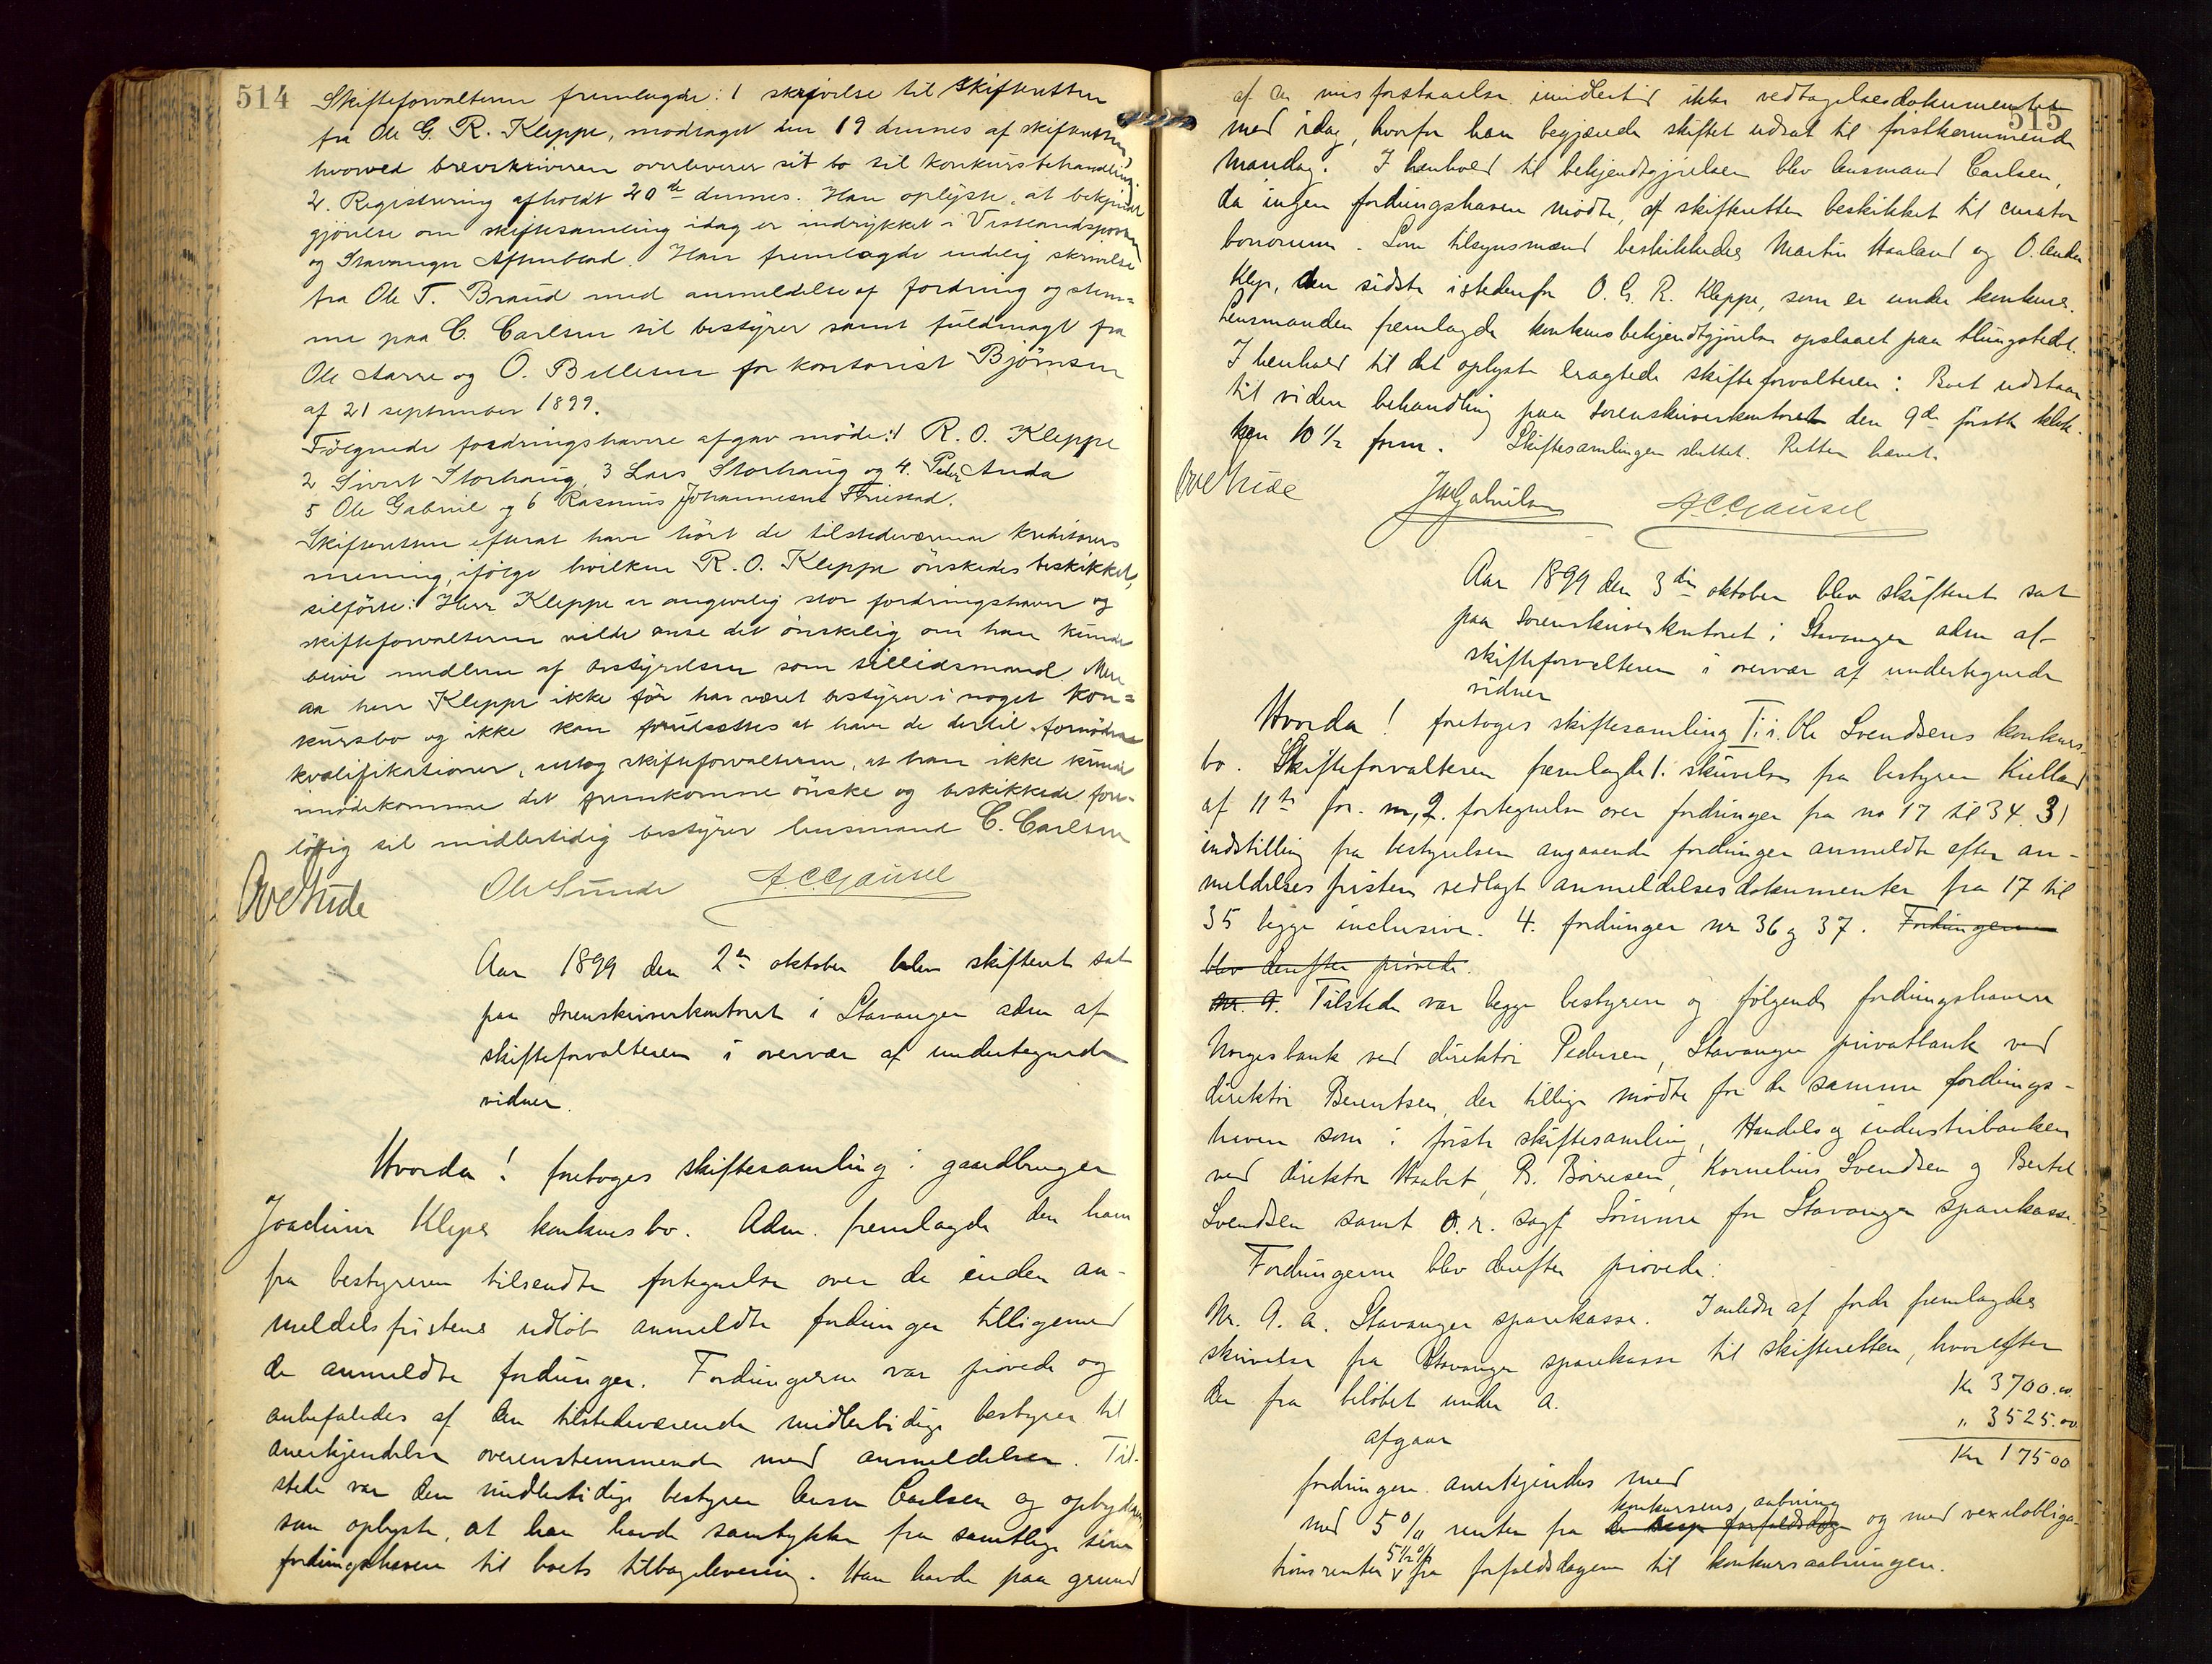 514
Skifteforvalteren fremlagde: 1 skrivelse til skifteretten
fra Ole G. R. Kleppe, modtaget den 19 dennes af skifteretten,
hvorved brevskriveren overleverer sit bo til konkursbehandling.
2. Registrering afholdt 20de dennes. Han oplyste, at bekjendt
gjørelse om skiftesamling idag er indrykket i Vestlandsposten
og Stavanger Aftenblad. Han fremlagde endelig skrivelse
fra Ole T. Braud med anmeldelse af fordring og stem=
me paa C. Carlsen til bestyrer samt fuldmagt fra
Ole Aarre og O. Billesen for kontorist Bjørnsen
af 21 september 1899.
Følgende fordringshavere afgav møde: 1 R. O. Kleppe
2 Sivert Storhaug, 3 Lars Storhaug og 4. Peder Anda
5 Ole Gabriel og 6 Rasmus Johannesen Friestad.
Skifteretten efterat have hørt de tilstedeværende kreditorers
mening, ifølge hvilken R. O. Kleppe ønskedes beskikket,
tilførte: Herr Kleppe er angivelig stor fordringshaver og
skifteforvalteren vilde anse det ønskelig om han kunde
blive medlem af bestyrelsen som tillidsmand Men
da herr Kleppe ikke før har været bestyrer i noget kon=
kursbo og ikke kan forudsættes at have de dertil fornødne
kvalifikationer, antog skifteforvalteren, at han ikke kunde
imødekomme det fremkomne ønske og beskikkede fore=
løbig til midlertidig bestyrer lensmand C. Carlsen
Ole Sunde A.C. Gausel
Aar 1899 den 2den oktober blev skifteret sat
paa sorenskriverkontoret i Stavanger adm af
skifteforvalteren i overvær af undertegnede
vidner.
Hvorda! foretoges skiftesamling i gaardbruger
Joachim Kleps konkursbo. Adm. fremlagde den ham
fra bestyreren tilsendte fortegnelse over de inden an-
meldelsfristens udløb anmeldte fordringer tilligemed
de anmeldte fordringer. Fordringerne var prøvede og
anbefaledes af den tilstedeværende midlertidige bestyrer til
anerkjendelse overenstemmende med anmeldelsen. Til-
stede var den midlertidige bestyrer lensm Carlsen og opbyderen,
som oplyste, at han havde samtykke fra samtlige sine
fordringshavere til boets tilbagelevering. Han havde paa grund
515
af en misforstaaelse imidlertid ikke vedtagelsesdokumentet
med idag, hvorfor han begjærede skiftet udsat til førstkommende
mandag. I henhold til bekjendtgjørelsen blev lensmand Carlsen,
da ingen fordringshaver mødte, af skifteretten beskikket til curator
bonorum. Som tilsynsmænd beskikkedes Martin Haaland og O. Anda
Klep, den sidste istedenfor O. G. R. Kleppe, som er under konkurs.
Lensmanden fremlagde konkursbekjendtgjørelse opslaaet paa thingstedet.
I henhold til det oplyste eragtede skifteforvalteren: Boet udstaar
til videre behandling paa sorenskriverkontoret den 9de førstk klok-
ken 10 1/2 form. Skiftesamlingen sluttet. Retten hævet.
A.C. Gausel
Aar 1899 den 3die oktober blev skifteret sat
paa sorenskriverkontoret i Stavanger adm af
skifteforvalteren i overvær af undertegnede
vidner
Hvorda! foretoges skiftesamling I i. Ole Svendsens konkurs-
bo. Skifteforvalteren fremlagde 1. skrivelse fra bestyrer Kielland
af 11te for. m, 2. fortegnelse over fordringer fra no 17 til 34. 3)
indstilling fra bestyrelsen angaaende fordringer anmeldte efter an-
meldelsesfristen vedlagt anmeldelsesdokumenter fra 17 til
35 begge inclusive. 4. fordringer nr 36 og 37. Fordringerne
blev derefter prøvede.
Nr. 9. Tilstede var begge bestyrere og følgende fordringshavere
Norgesbank ved direktør Pedersen, Stavanger privatbank ved
direktør Berentsen, der tillige mødte for de samme fordrings-
havere som i første skiftesamling, Handels og industribanken
ved direktør Haabet, B. Børresen, Kornelius Svendsen og Bertel
Svendsen samt o. r. sagf Sømme for Stavanger sparekasse.
Fordringerne blev derefter prøvede:
Nr. 9. a. Stavanger sparekasse. I anledn af fordr fremlagdes
skrivelse fra Stavanger sparekasse til skifteretten, hvorefter
der fra beløbet under a. Kr 3700.00
afgaar " 3525.00
Kr 175 00
fordringen anerkjendes med
konkursens aabning
med 5 % renter fra og med vexelobliga-
5 1/2 %
tionsrenten fra forfaldsdagen til konkursaabningen.